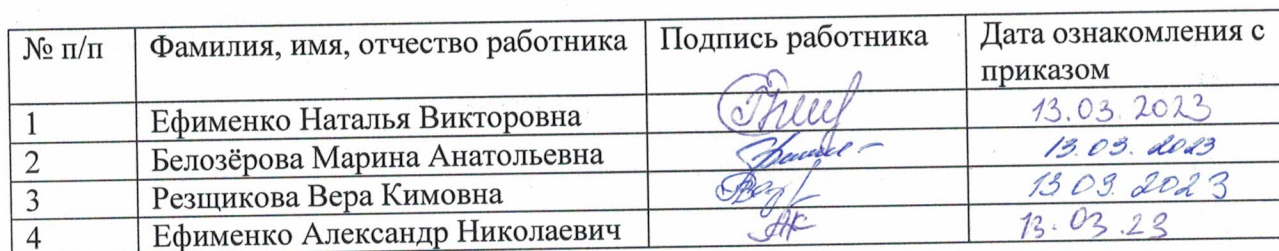 № п/п Фамилия, имя, отчество работника Подпись работника Дата ознакомления с приказом
1 Ефименко Наталья Викторовна 13.03.2023
2 Белозёрова Марина Анатольевна 13.03.2023
3 Резщикова Вера Кимовна 13.03.2023
4 Ефименко Александр Николаевич 13.03.23